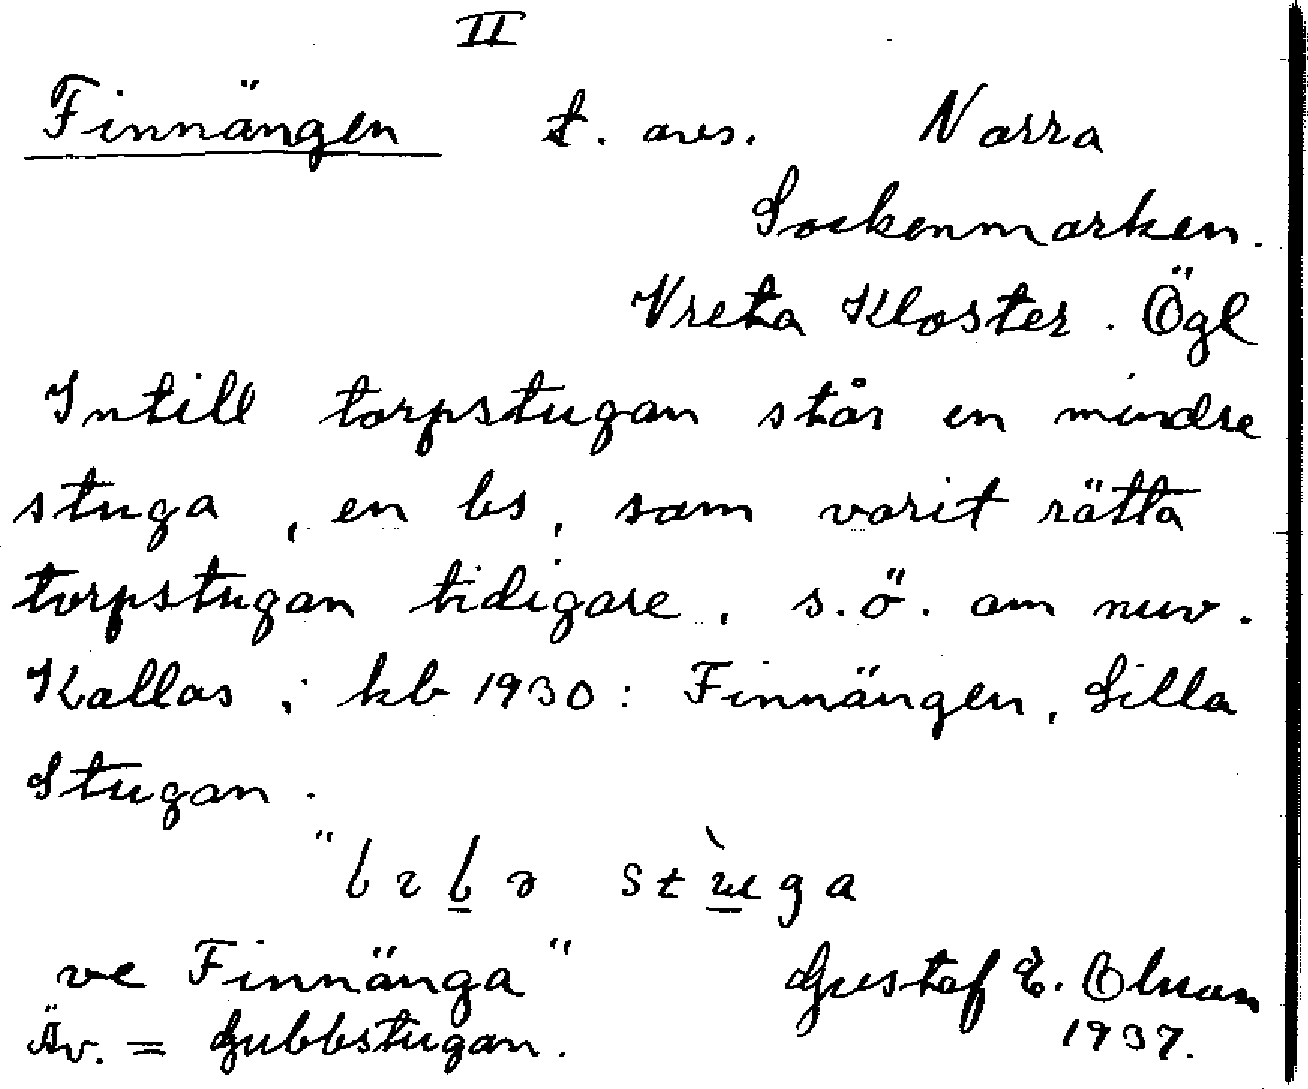 II
Finnängen t. avs. Norra
Sockenmarken.
Vreta Kloster. Ögl
Intill torpstugan står en mindre
stuga, en bs, som varit rätta
torpstugan tidigare, s.ö. om nuv.
Kallas i kb 1930: Finnängen, Lilla
Stugan.
stuga
ve Finnänga" Gustaf E. Olman
Äv. = Gubbstugan. 1937.